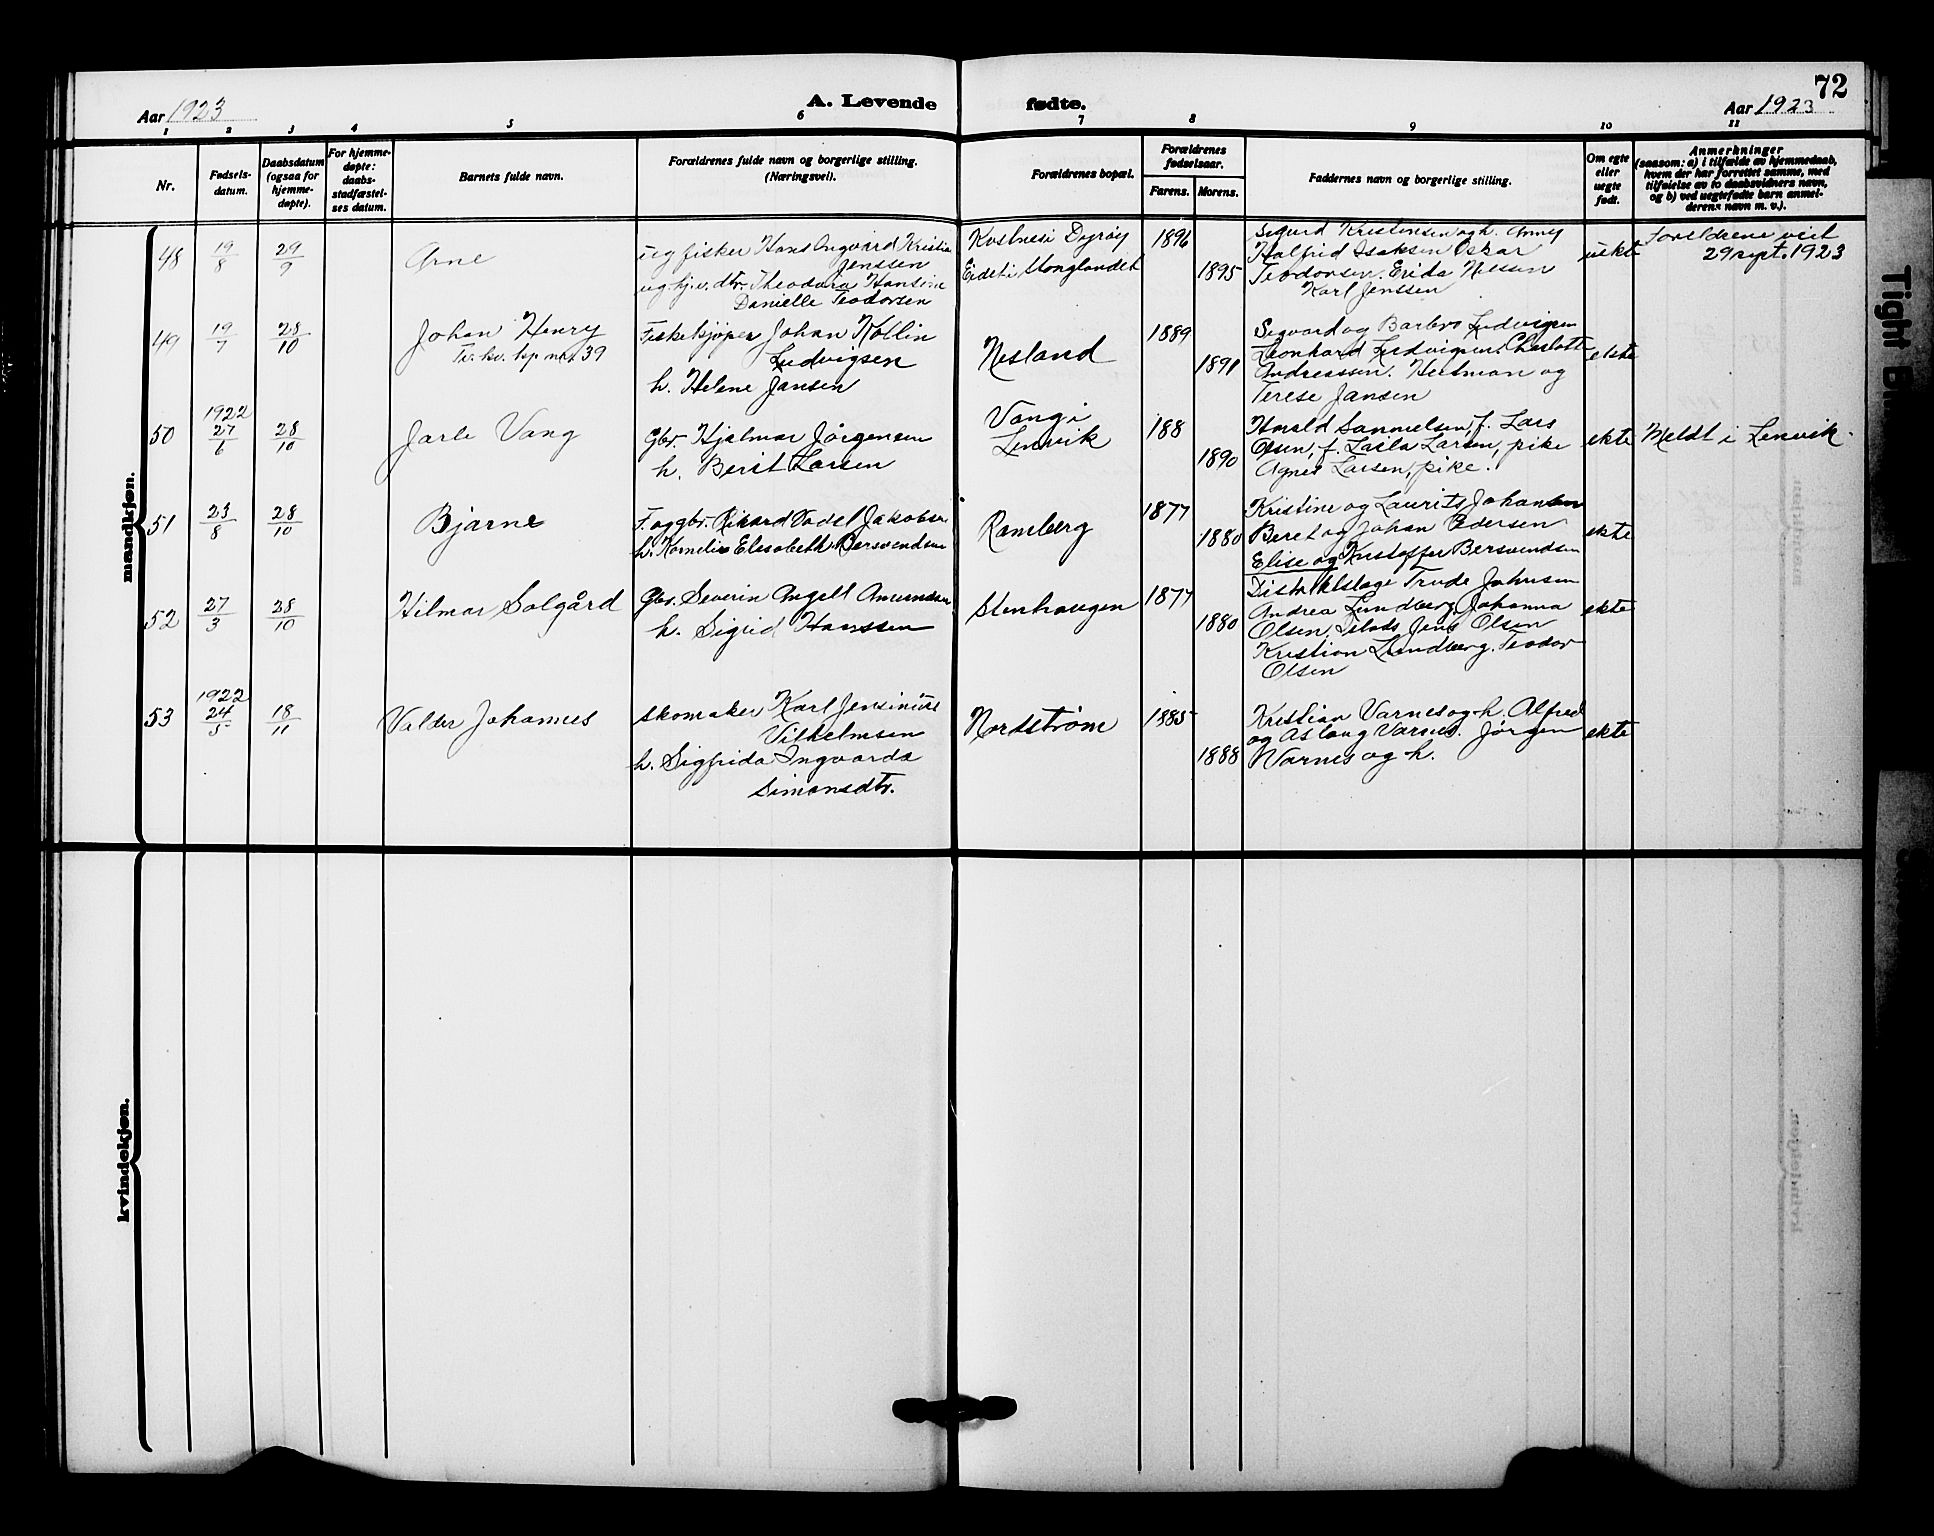 72
Aar 1923
A. Levende fødte.
Aar 1923
1 2 3 4 5 6 7 8 9 10 11
Nr.
Fødsels-
datum.
Daabsdatum
(ogsaa for
hjemme-
døpte).
For hjemme-
døpte:
daabs-
stadfæstel-
ses datum.
Barnets fulde navn.
Forældrenes fulde navn og borgerlige stilling.
(Næringsvei).
Forældrenes bopæl.
Forældrenes
fødselsaar.
Farens. Morens.
Faddernes navn og borgerlige stilling.
Om egte
eller
uegte
født.
Anmerkninger
(saasom: a) i tilfælde av hjemmedaab,
hvem der har forrettet samme, med
tilføielse av to daabsvidners navn,
og b) ved uegtefødte barn anmel-
derens navn m. v.).
mandkjøn.
48
19/8
29/9
Arne
ug fisker Hans Ingvard Kristia
Jenssen
ug. hj. v. dtr. Theodora Hansine
Danielle Teodorsen
Dyrøy
Eidet i Stonglandet
1896
1895
Sigurd Kristensen og h. Anny
Halfrid Isaksen Oskar
Teodorsen. Erida Nilsen
Karl Jenssen
uekte
Foreldrene veit
29 sept. 1923
49
19/7
28/10
Johan Henry
39
Fiskekjøper Johan Kollin
Ludvigsen
h. Helene Jansen
Nesland
1889
1891
Sigvard og Barbro Ludvigsen
Leonhard Ludvigsen. Charlotte
Andreassen. Hertman og
Terese Jansen
ekte
50
1922
27/6
28/10
Jarle Vang
Gbr. Hjalmar Jørgensen
h. Berit Larsen
Vang i
Lenvik
188
1890
Harald Samuelsen, f. Lars
Olsen, f. Laila Larsen, pike
Agnes Larsen, pike.
ekte
Meldt i Lenvik.
51
23/8
28/10
Bjarne
F. og gbr. Rikard Vadel Jakobsen
h. Kornelie Elisabeth Bersvendsen
Ramberg
1877
1880
Kristine og Laurits Johansen
Beret og Johan Pedersen
Elise og Kristoffer Bersvendsen
ekte
52
27/3
28/10
Hilmar Solgård
Gbr. Severin Angell Amundsen
h. Sigrid Hanssen
Stenhaugen
1877
1880
Distriktslæge Trude Johnsen
Andrea Lundberg. Johanna
Olsen. Jens Olsen
Kristian Lundberg. Teodor
Olsen
ekte
53
1922
24/5
18/11
Valder Johannes
skomaker Karl Jensinius
Vilhelmsen
h. Sigfrida Ingvarda
Simonsdtr.
Nordstrøm
1885
1888
Kristian Varnes og h. Alfred
og Aslaug Varnes. Jørgen
Varnes og h.
ekte
kvindekjøn.